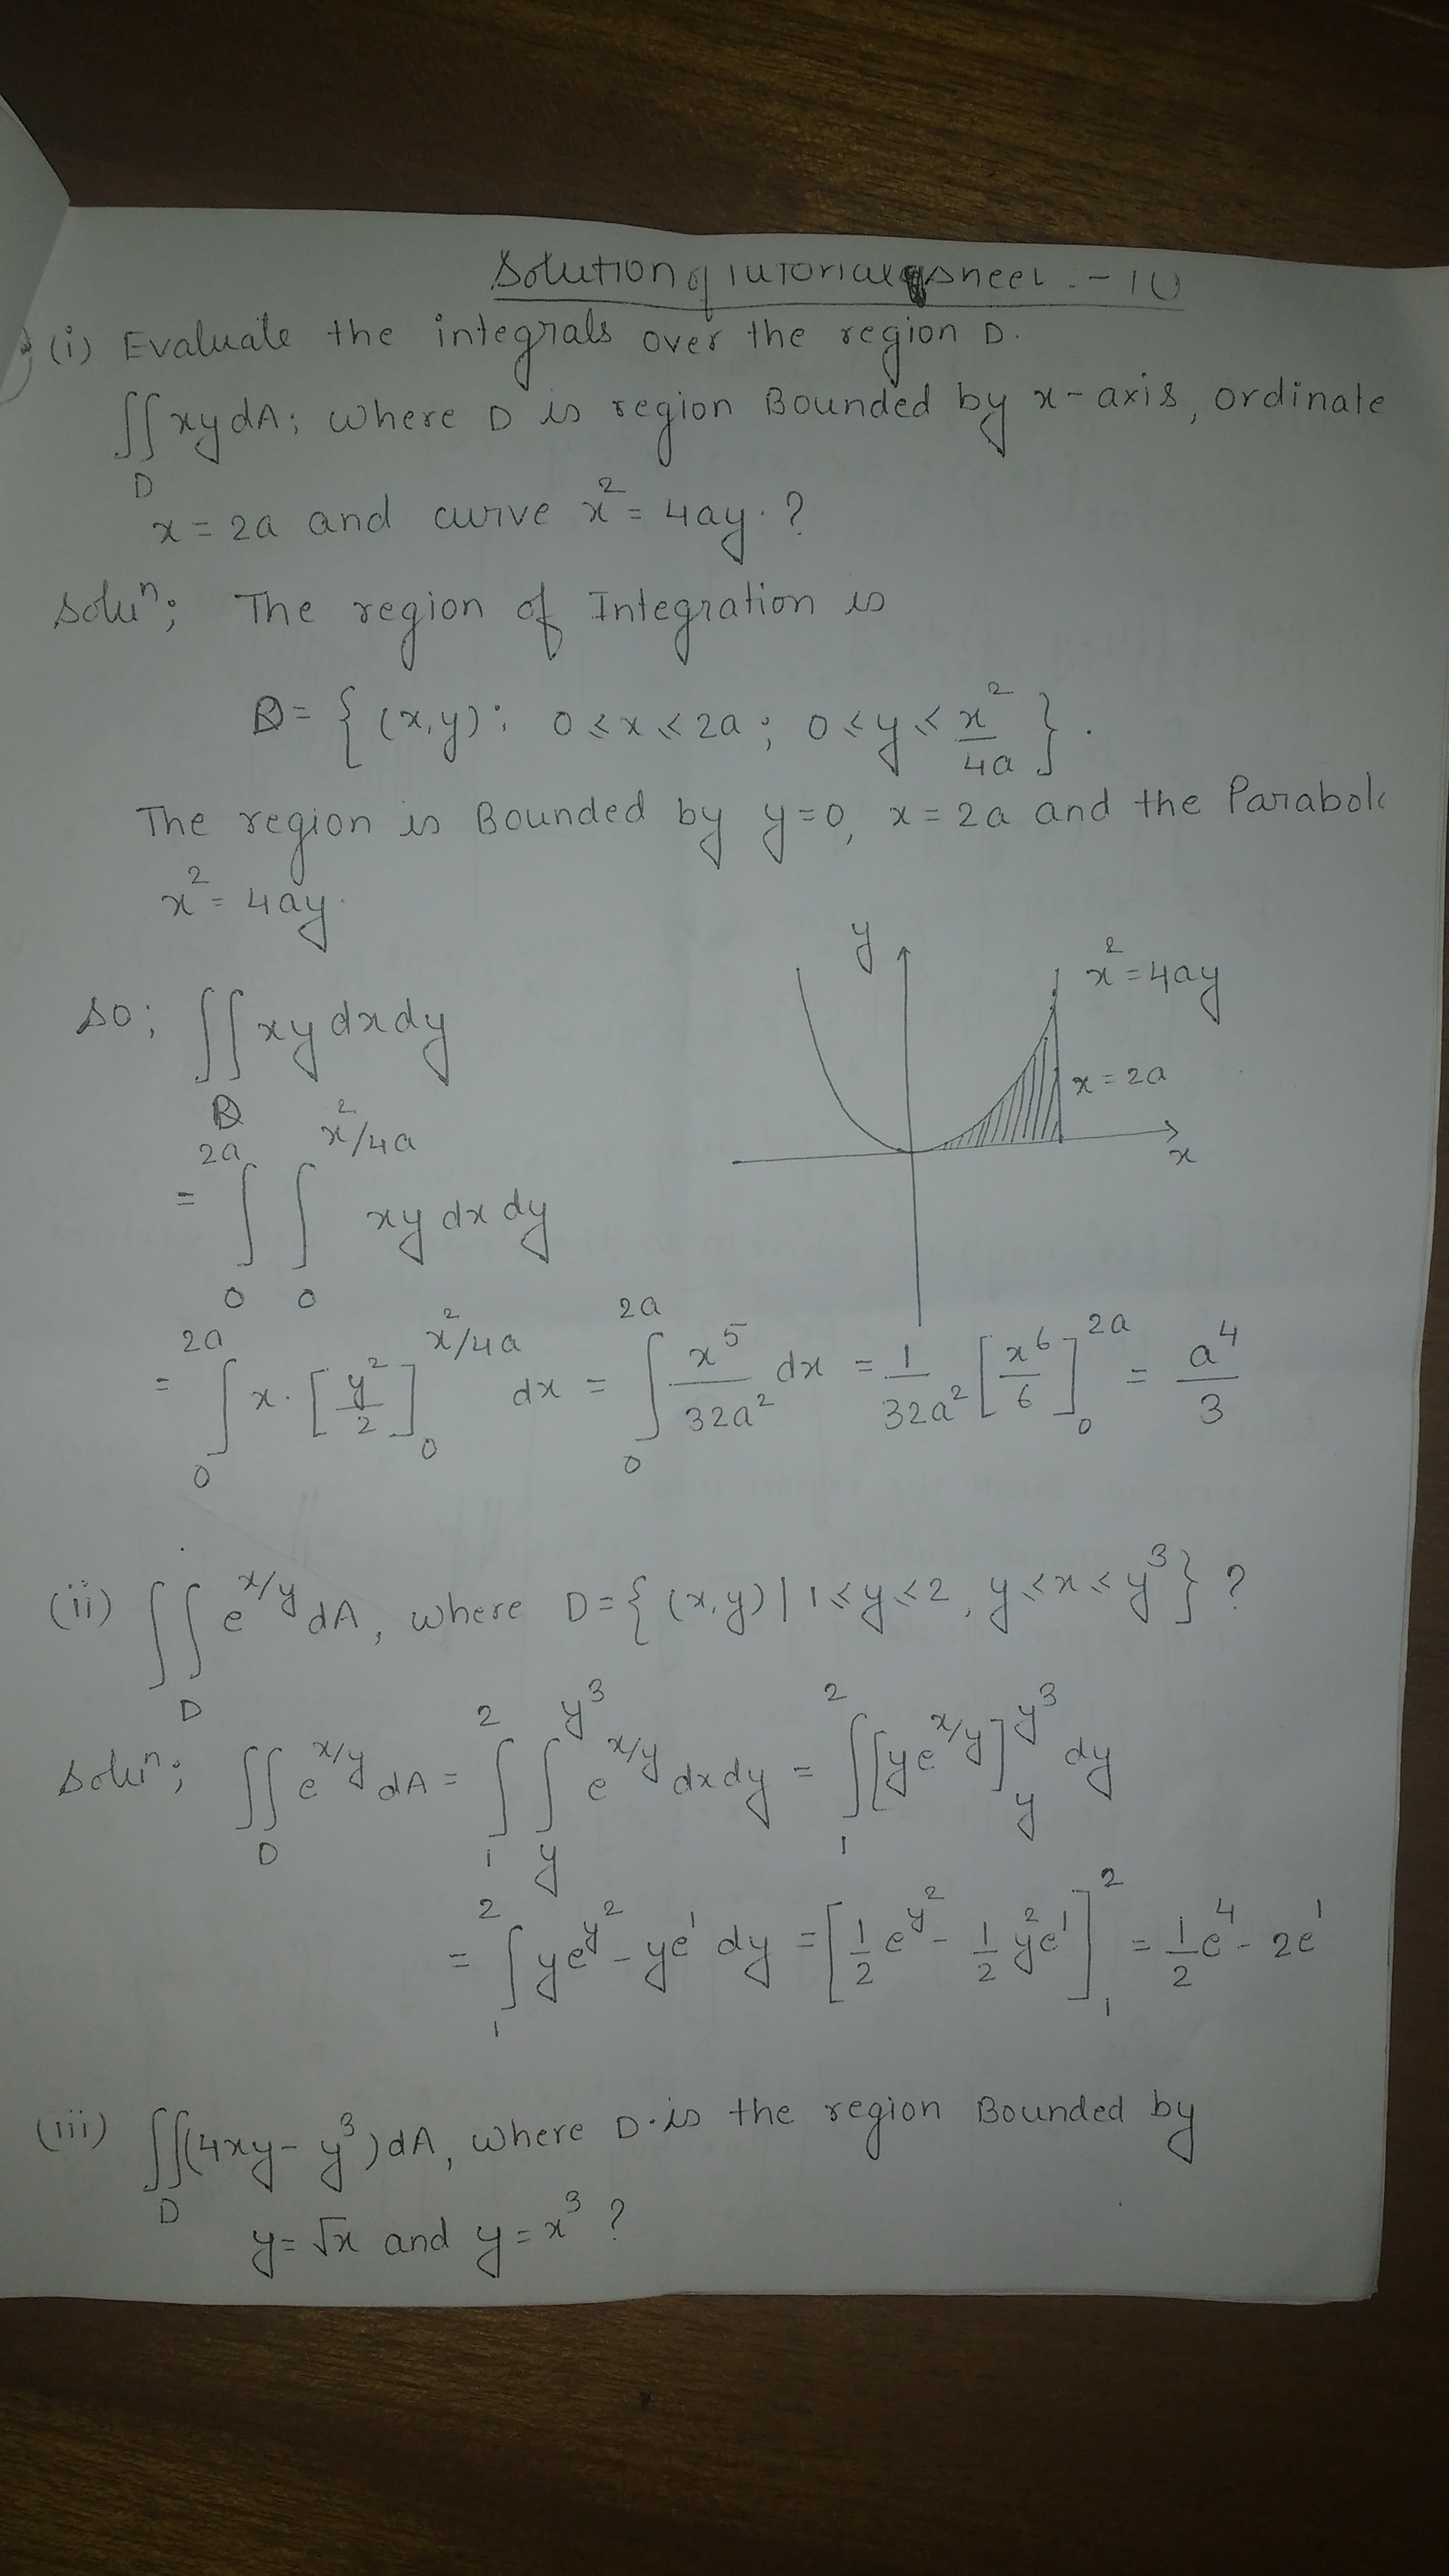 Solution of Tutorial sheet :- 10
(i) Evaluate the integrals over the region D.
∬_D xy dA; where D is region Bounded by x-axis, ordinate
x = 2a and curve x² = 4ay. ?
Soluⁿ; The region of Integration is
D = { (x,y): 0 ≤ x ≤ 2a; 0 ≤ y ≤ x²/4a }.
The region is Bounded by y=0, x=2a and the Parabol
x² = 4ay.
y
x² = 4ay
x = 2a
x
so; ∬_D xy dx dy
= ∫_0^{2a} ∫_0^{x²/4a} xy dx dy
= ∫_0^{2a} x·[y²/2]_0^{x²/4a} dx = ∫_0^{2a} x⁵/32a² dx = 1/32a² [x⁶/6]_0^{2a} = a⁴/3
(ii) ∬_D e^{x/y} dA, where D = { (x,y) | 1 ≤ y ≤ 2, y ≤ x ≤ y³ } ?
Soluⁿ; ∬_D e^{x/y} dA = ∫_1^2 ∫_y^{y³} e^{x/y} dx dy = ∫_1^2 [y e^{x/y}]_y^{y³} dy
= ∫_1^2 y e^{y²} - y e¹ dy = [1/2 e^{y²} - 1/2 y² e¹]_1^2 = 1/2 e⁴ - 2e¹
(iii) ∬_D (4xy - y³) dA, where D is the region Bounded by
y = √x and y = x³ ?